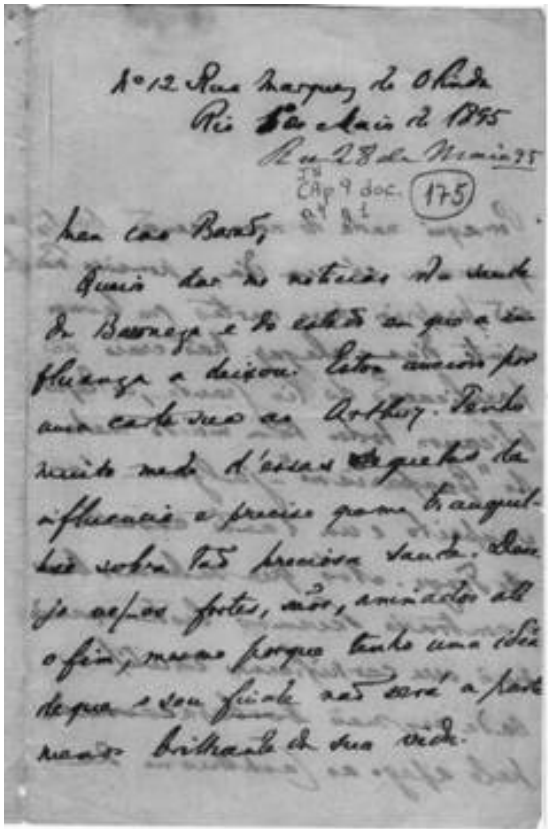 Nº 12 Rua Marquez de Olinda
Rio 1º de Maio de 1895
R. 28 de Maio 95
JN
CAp 9 doc.
175
Meu caro Barão,
Queira dar me noticias da saude
da Baroneza e do estado em que a in
fluenza a deixou. Estou ancioso por
uma carta sua ao Arthur. Tenho
muito medo d'essas sequelas da
influencia e preciso que me tranquil-
lise sobre tão preciosa saude. Dese
jo os fortes, sãos, animados até
o fim, mesmo porque tenho uma idéa
de que o seu finale não será a parte
menos brilhante da sua vida.